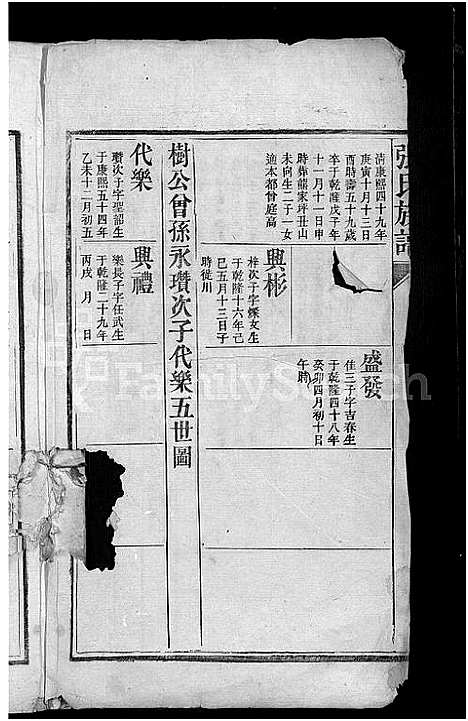 張氏族譜
清康熙四十九年
庚寅十月十三日
酉時壽五十九歲
卒于乾隆戊子年
十一月十一日申
時葬龍家坪丑山
未向生二子一女
適本都曾庭高
興彬
梓次子字煥文生
于乾隆十六年己
巳五月十三日子
時徒川
盛發
佳三子字吉春生
于乾隆四十八年
癸卯四月初十日
午時
樹公曾孫永瓚次子代樂五世圖
代樂
瓚次子字聖韶生
于康熙五十四年
乙未十二月初五
興禮
樂長子字任武生
于乾隆二十九年
丙戌 月 日
FamilySearch